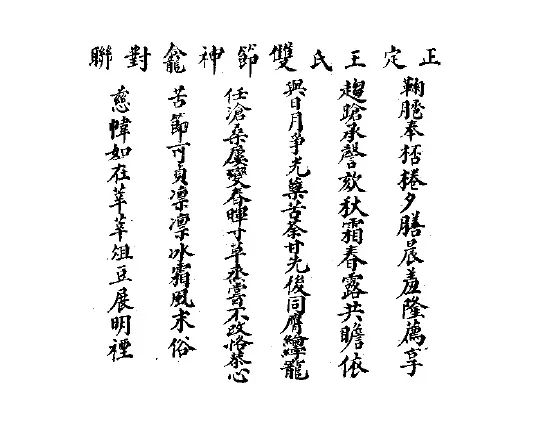 正定王氏雙節神龕對聯
鞠奉桮棬夕膳晨羞隆薦享
趨蹌承謦欬秋霜春露共瞻依
與日月爭光蘗苦荼甘先後同膺龍
任滄桑屢變春暉寸草烝嘗不改恪恭心
苦節可貞凛凛冰霜風末俗
慈幃如在莘莘俎豆展明禋